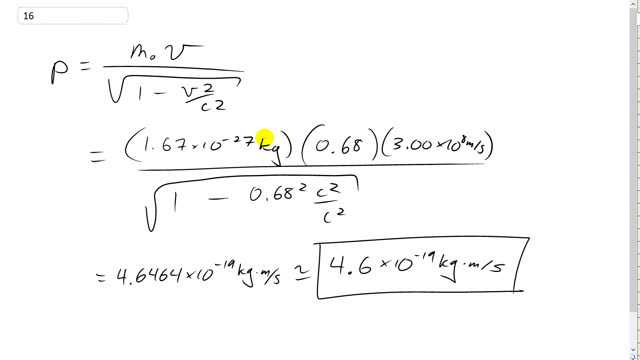 16
p = m₀ v / √(1 − v²/c²)
= (1.67×10⁻²⁷ kg) (0.68) (3.00×10⁸ m/s) / √(1 − 0.68² c²/c²)
= 4.6464×10⁻¹⁹ kg·m/s ≃ 4.6×10⁻¹⁹ kg·m/s